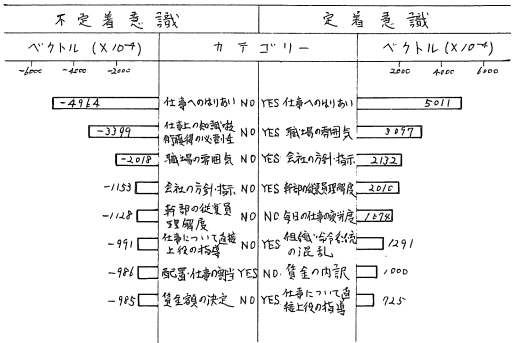 不定着意識 定着意識
ベクトル (×10⁻⁴) カテゴリー ベクトル (×10⁻⁴)
-6000 -4000 -2000 2000 4000 6000
-4964 仕事へのはりあい NO YES 仕事へのはりあい 5011
-3399 仕事上の知識・技
術獲得の必要性 NO YES 職場の雰囲気 3097
-2018 職場の雰囲気 NO YES 会社の方針・指示 2132
-1153 会社の方針・指示 NO YES 幹部の従業員理解度 2010
-1128 幹部の従業員
理解度 NO NO 毎日の仕事の疲労度 1674
-991 仕事について直接
上役の指導 NO YES 組織・命令系統
の混乱 1291
-986 配置・仕事の割当 YES NO 賃金の内訳 1000
-985 賃金額の決定 NO YES 仕事について直
接上役の指導 725